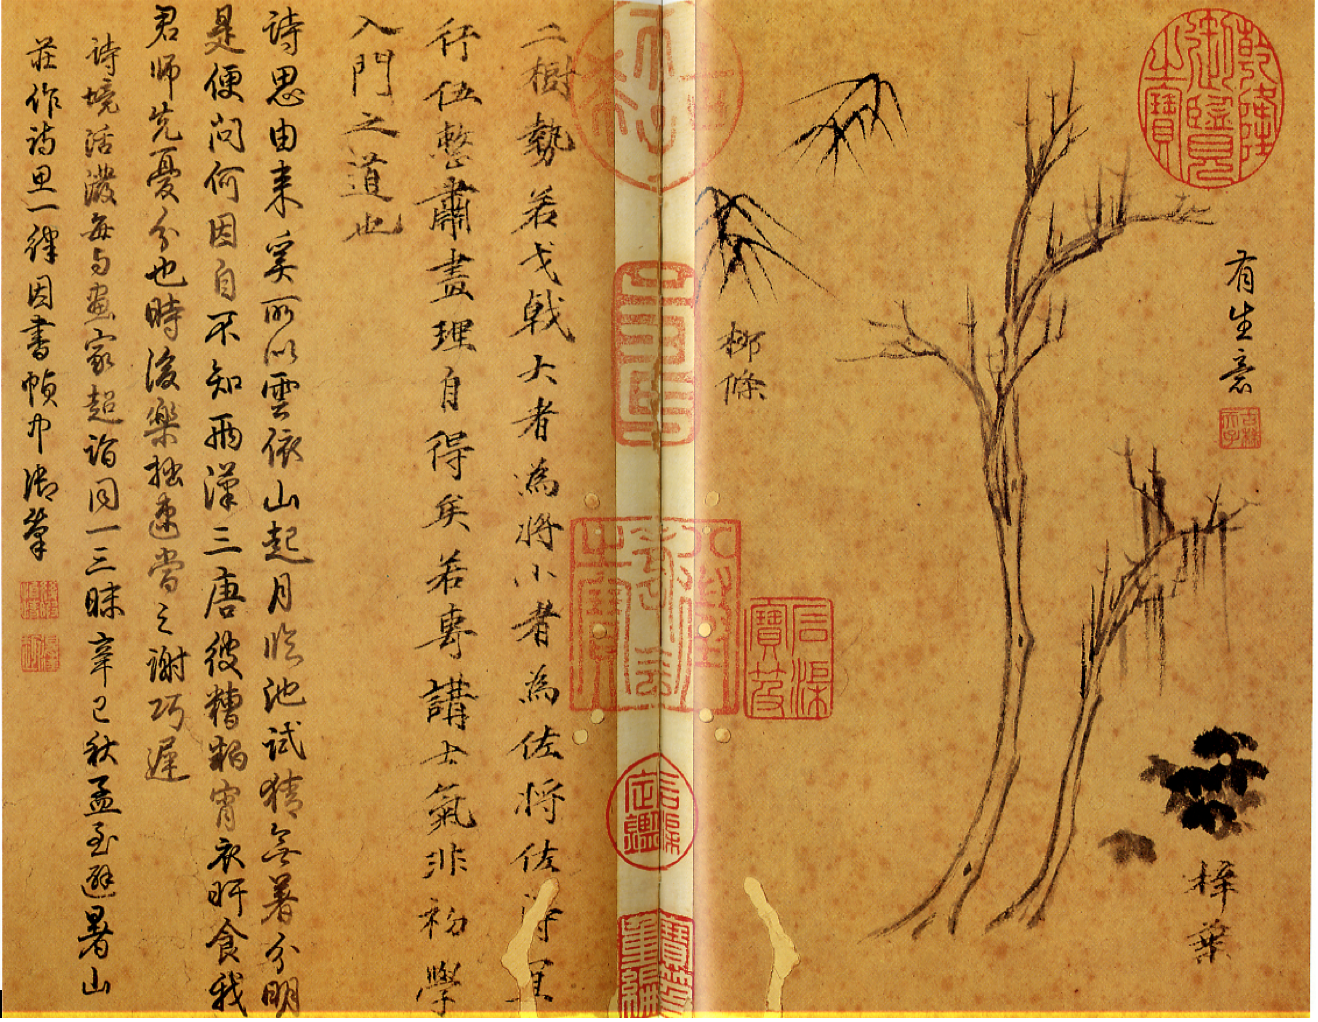 乾隆御覽之寶
有生意
柳條
樺葉
二樹勢若戈戟大者為將小者為佐將佐得宜
行伍整肅畫理自得矣若專講士氣非初學
入門之道也
詩思由來奚所以雲依山起月臨池試猜無著分明
是便問何因自不知兩漢三唐彼糟粕宵衣旰食我
君師先憂分也時後樂拙速當之謝巧遲
詩境活潑每與畫家超詣同一三昧辛巳秋孟至避暑山
莊作詩思一律因書幀中御筆
石渠寶笈
石渠定鑑
寶笈重編